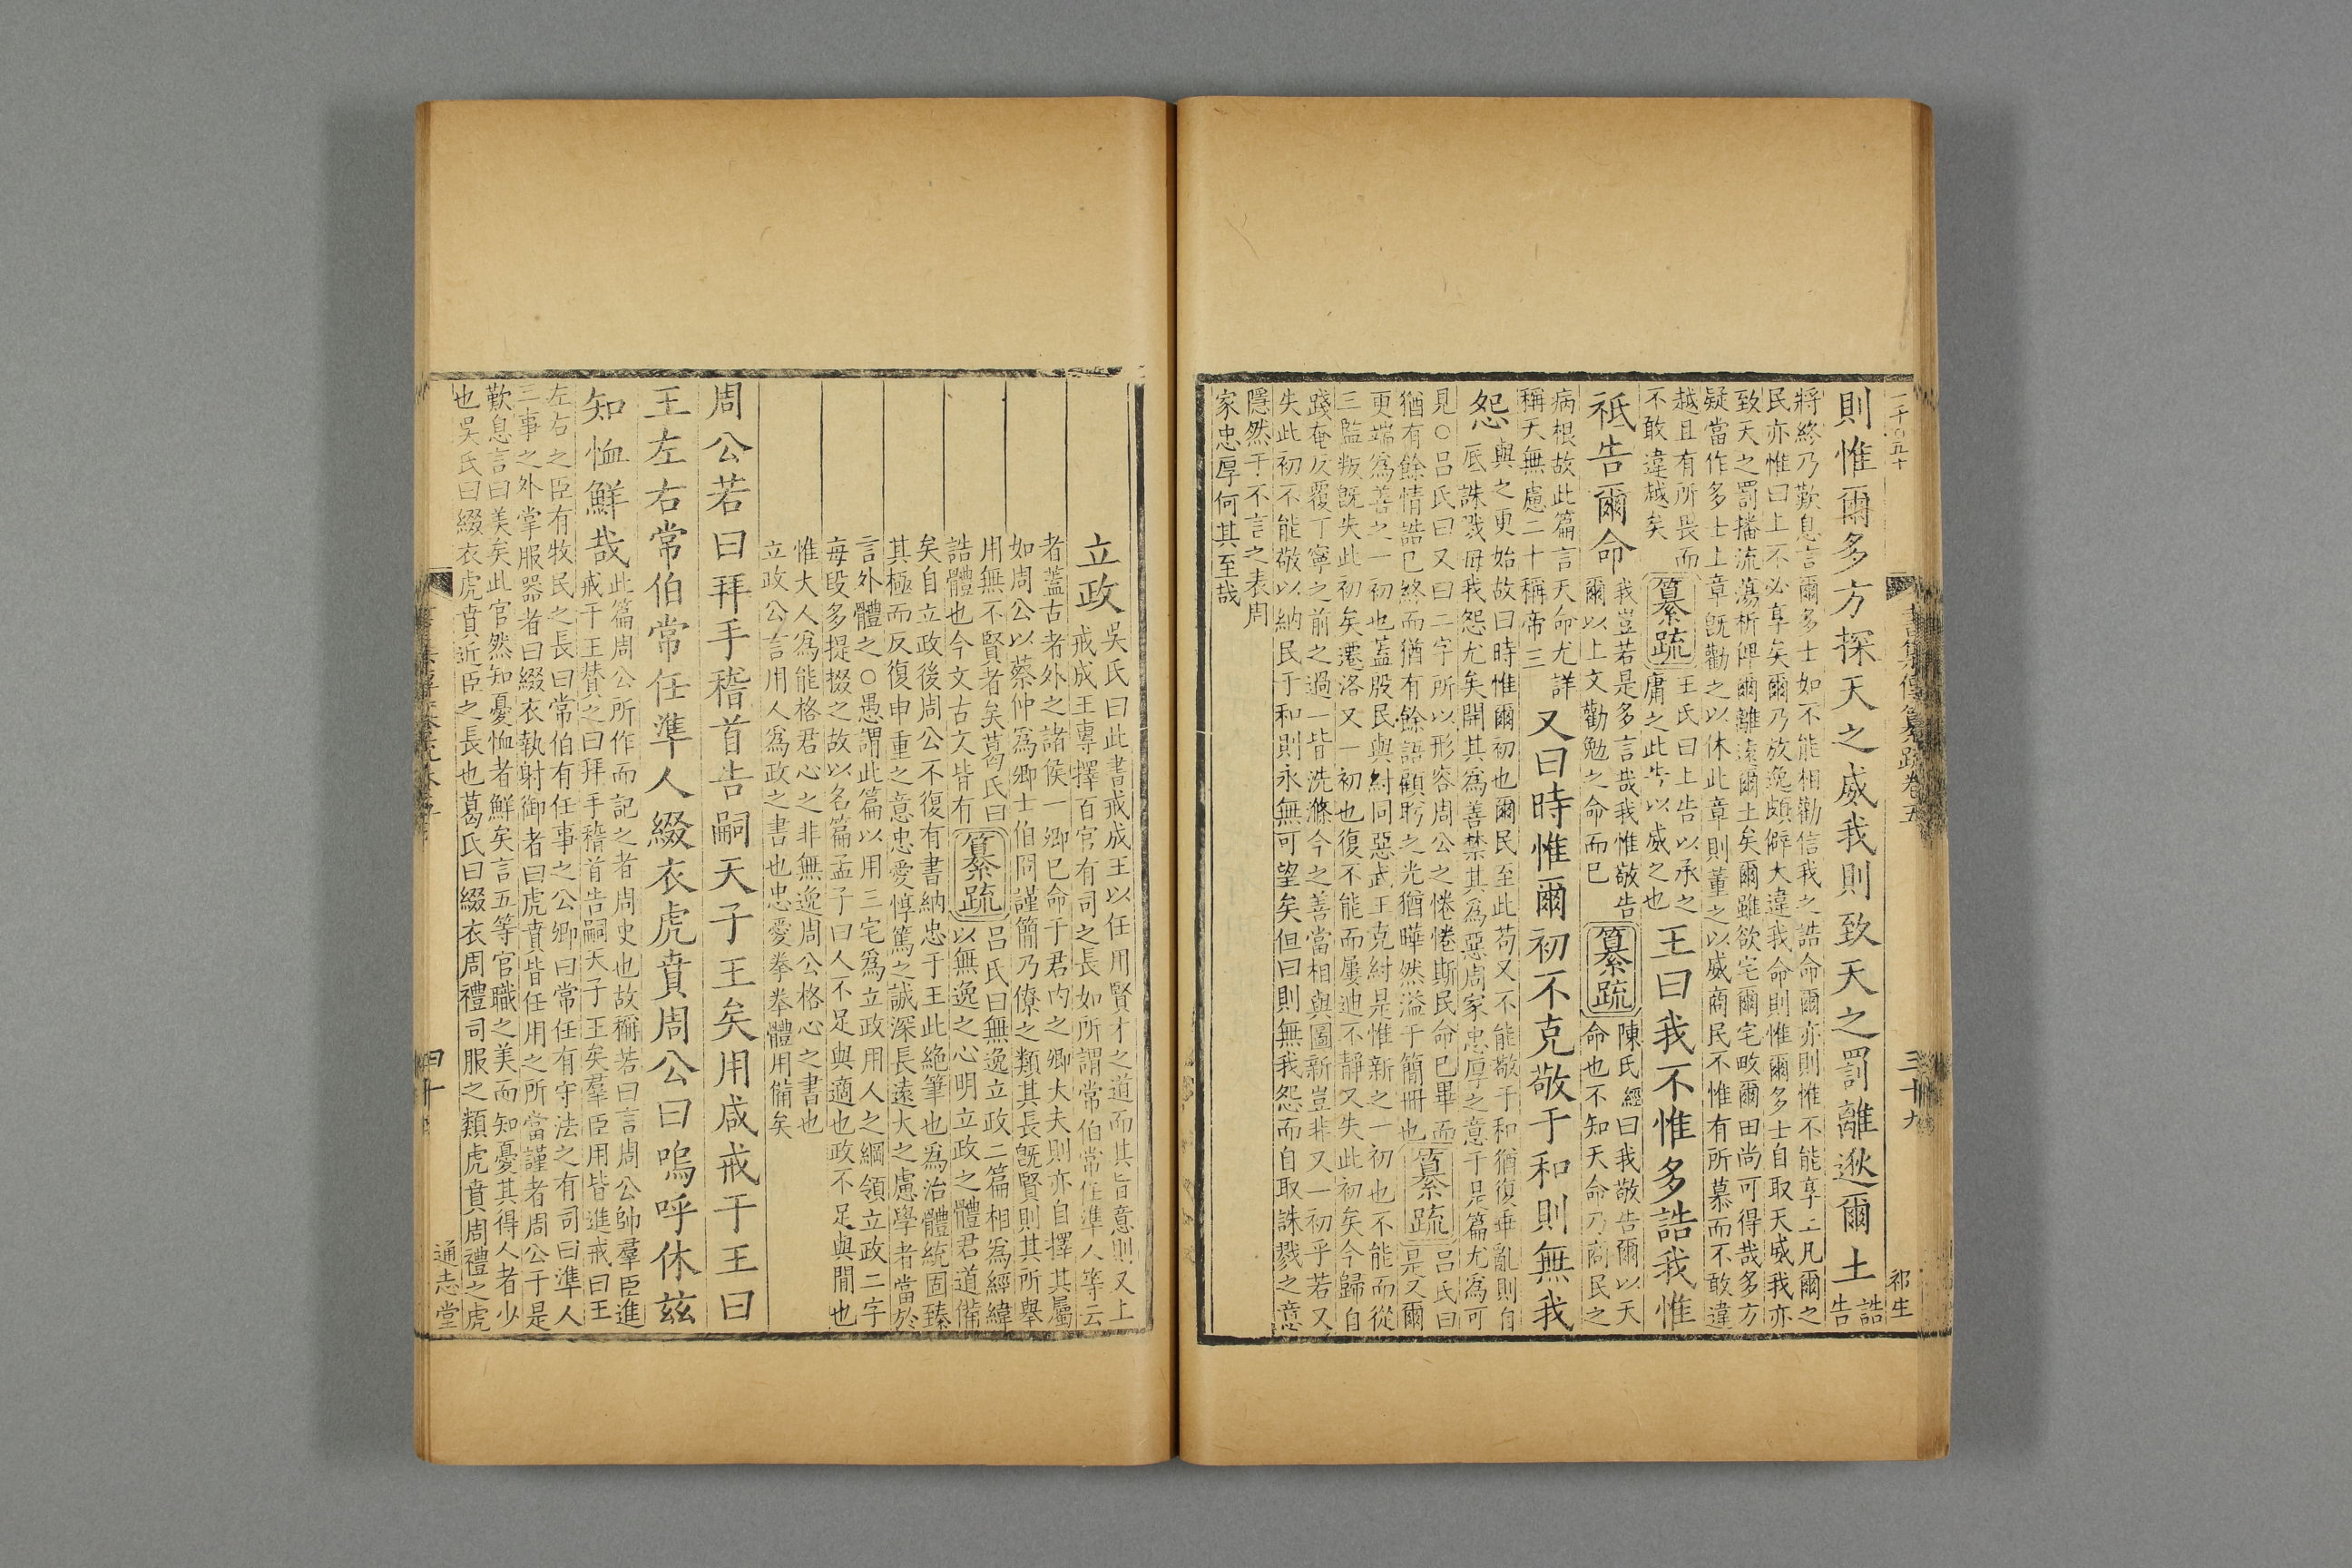 一千〇五十
書集傳纂疏卷五
三十九
祁生
則惟爾多方探天之威我則致天之罰離逖爾土誥告
將終乃歎息言爾多士如不能相勸信我之誥命爾亦則惟不能享上凡爾之
民亦惟曰上不必享矣爾乃放逸頗僻大違我命則惟爾多士自取天威我亦
致天之罰播流蕩析俾爾離遠爾土矣爾雖欲宅爾宅畋爾田尚可得哉多方
疑當作多士上章旣勸之以休此章則董之以威商民不惟有所慕而不敢違
越且有所畏而不敢違越矣纂疏王氏曰上告以承之庸之此告以威之也王曰我不惟多誥我惟
祗告爾命我豈若是多言哉我惟敬告爾以上文勸勉之命而已纂疏陳氏經曰我敬告爾以天命也不知天命乃商民之
病根故此篇言天命尤詳稱天無慮二十稱帝三又曰時惟爾初不克敬于和則無我
怨與之更始故曰時惟爾初也爾民至此苟又不能敬于和猶復乖亂則自底誅戮毋我怨尤矣開其爲善禁其爲惡周家忠厚之意于是篇尤爲可
見○呂氏曰又曰二字所以形容周公之惓惓斯民命已畢而猶有餘情誥已終而猶有餘語顧眄之光猶曄然溢于簡冊也纂疏呂氏曰是又爾
更端爲善之一初也蓋殷民與紂同惡武王克紂是惟新之一初也不能而從
三監叛旣失此初矣遷洛又一初也復不能而屢迪不靜又失此初矣今歸自
踐奄反覆丁寧之前之過一皆洗滌今之善當相與圖新豈非又一初乎若又
失此初不能敬以納民于和則永無可望矣但曰則無我怨而自取誅戮之意
隱然于不言之表周
家忠厚何其至哉
立政吳氏曰此書戒成王以任用賢才之道而其旨意則又上戒成王專擇百官有司之長如所謂常伯常任準人等云
者蓋古者外之諸侯一卿已命于君內之卿大夫則亦自擇其屬
如周公以蔡仲爲卿士伯冏謹簡乃僚之類其長旣賢則其所舉
用無不賢者矣葛氏曰誥體也今文古文皆有纂疏呂氏曰無逸立政二篇相爲經緯以無逸之心明立政之體君道備
矣自立政後周公不復有書納忠于王此絶筆也爲治體統固臻
其極而反復申重之意忠愛惇篤之誠深長遠大之慮學者當於
言外體之○愚謂此篇以用三宅爲立政用人之綱領立政二字
每段多提掇之故以名篇孟子曰人不足與適也政不足與閒也
惟大人爲能格君心之非無逸周公格心之書也
立政公言用人爲政之書也忠愛拳拳體用備矣
周公若曰拜手稽首告嗣天子王矣用咸戒于王曰
王左右常伯常任準人綴衣虎賁周公曰嗚呼休茲
知恤鮮哉此篇周公所作而記之者周史也故稱若曰言周公帥羣臣進戒于王贊之曰拜手稽首告嗣天子王矣羣臣用皆進戒曰王
左右之臣有牧民之長曰常伯有任事之公卿曰常任有守法之有司曰準人
三事之外掌服器者曰綴衣執射御者曰虎賁皆任用之所當謹者周公于是
歎息言曰美矣此官然知憂恤者鮮矣言五等官職之美而知憂其得人者少
也吳氏曰綴衣虎賁近臣之長也葛氏曰綴衣周禮司服之類虎賁周禮之虎
四十
通志堂